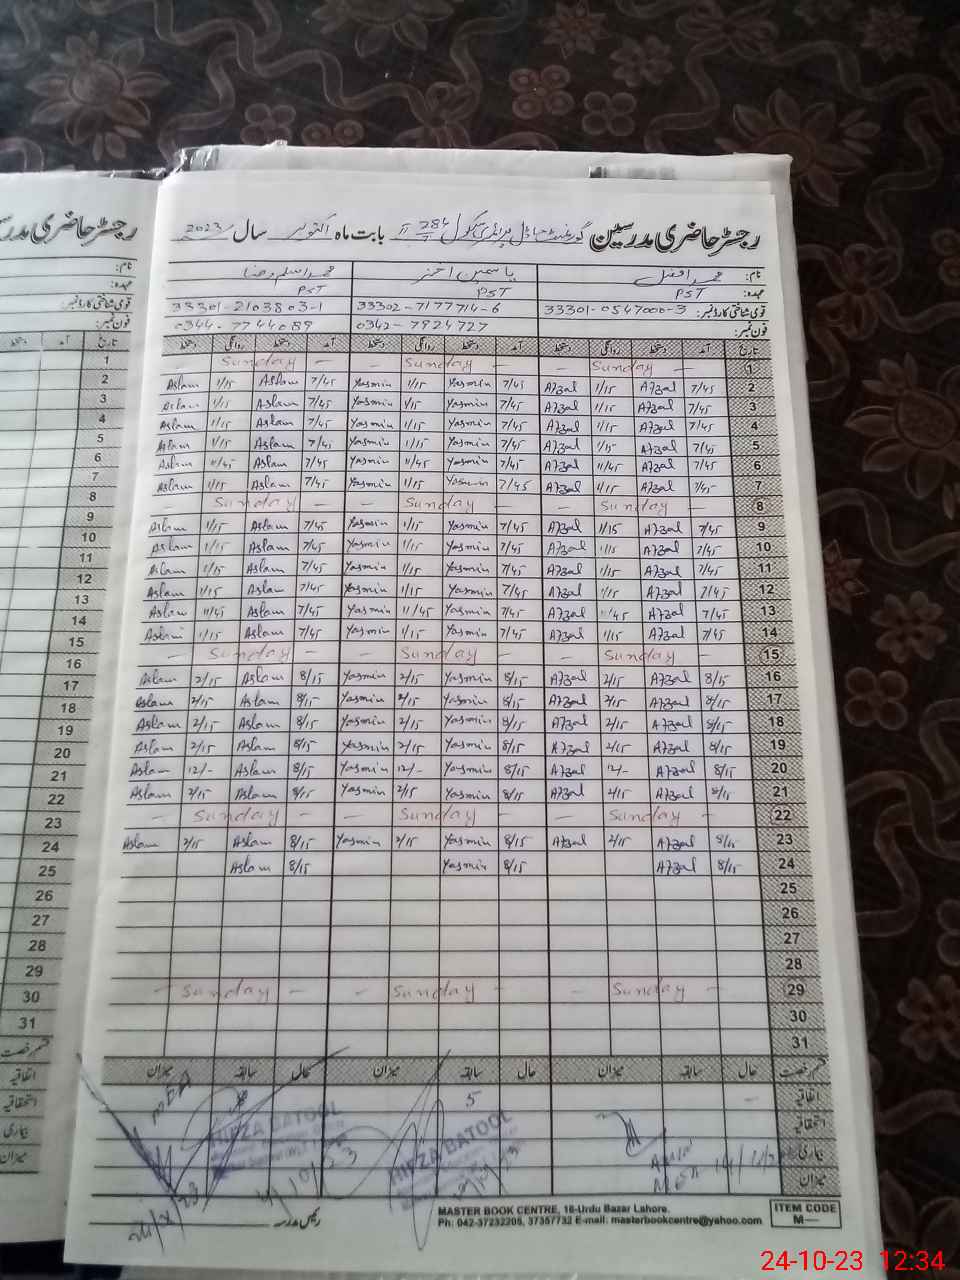 رجسٹر حاضری مدرسین گورنمنٹ ماڈل پرائمری سکول 284 بابت ماہ اکتوبر سال 2023
نام: محمد افضل یاسمین اختر محمد اسلم رضا
عہدہ: PST PST PST
قومی شناختی کارڈ نمبر: 33301-0547000-3 33302-7177714-6 33301-2103803-1
فون نمبر: 0342-7924727 0344-7744089
تاریخ آمد دستخط روانگی دستخط آمد دستخط روانگی دستخط آمد دستخط روانگی دستخط
— Sunday — — Sunday — — Sunday — 1
Aslam 1/15 Aslam 7/45 Yasmin 1/15 Yasmin 7/45 Afzal 1/15 Afzal 7/45 2
Aslam 1/15 Aslam 7/45 Yasmin 1/15 Yasmin 7/45 Afzal 1/15 Afzal 7/45 3
Aslam 1/15 Aslam 7/45 Yasmin 1/15 Yasmin 7/45 Afzal 1/15 Afzal 7/45 4
Aslam 1/15 Aslam 7/45 Yasmin 1/15 Yasmin 7/45 Afzal 1/15 Afzal 7/45 5
Aslam 11/45 Aslam 7/45 Yasmin 11/45 Yasmin 7/45 Afzal 11/45 Afzal 7/45 6
Aslam 1/15 Aslam 7/45 Yasmin 1/15 Yasmin 7/45 Afzal 1/15 Afzal 7/45 7
— Sunday — — Sunday — — Sunday — 8
Aslam 1/15 Aslam 7/45 Yasmin 1/15 Yasmin 7/45 Afzal 1/15 Afzal 7/45 9
Aslam 1/15 Aslam 7/45 Yasmin 1/15 Yasmin 7/45 Afzal 1/15 Afzal 7/45 10
Aslam 1/15 Aslam 7/45 Yasmin 1/15 Yasmin 7/45 Afzal 1/15 Afzal 7/45 11
Aslam 1/15 Aslam 7/45 Yasmin 1/15 Yasmin 7/45 Afzal 1/15 Afzal 7/45 12
Aslam 11/45 Aslam 7/45 Yasmin 11/45 Yasmin 7/45 Afzal 11/45 Afzal 7/45 13
Aslam 1/15 Aslam 7/45 Yasmin 1/15 Yasmin 7/45 Afzal 1/15 Afzal 7/45 14
— Sunday — — Sunday — — Sunday — 15
Aslam 2/15 Aslam 8/15 Yasmin 2/15 Yasmin 8/15 Afzal 2/15 Afzal 8/15 16
Aslam 2/15 Aslam 8/15 Yasmin 2/15 Yasmin 8/15 Afzal 2/15 Afzal 8/15 17
Aslam 2/15 Aslam 8/15 Yasmin 2/15 Yasmin 8/15 Afzal 2/15 Afzal 8/15 18
Aslam 2/15 Aslam 8/15 Yasmin 2/15 Yasmin 8/15 Afzal 2/15 Afzal 8/15 19
Aslam 12/- Aslam 8/15 Yasmin 12/- Yasmin 8/15 Afzal 12/- Afzal 8/15 20
Aslam 2/15 Aslam 8/15 Yasmin 2/15 Yasmin 8/15 Afzal 2/15 Afzal 8/15 21
— Sunday — — Sunday — — Sunday — 22
Aslam 2/15 Aslam 8/15 Yasmin 2/15 Yasmin 8/15 Afzal 2/15 Afzal 8/15 23
Aslam 8/15 Yasmin 8/15 Afzal 8/15 24
25
26
27
28
— Sunday — — Sunday — — Sunday — 29
30
31
قسم رخصت حال سابقہ میزان حال سابقہ میزان حال سابقہ میزان
اتفاقیہ — 5
استحقاقیہ
بیماری
میزان
MEA
HIFZA BATOOL
HIFZA BATOOL
رئیس مدرسہ
MASTER BOOK CENTRE, 16-Urdu Bazar Lahore.
Ph: 042-37232205, 37357732 E-mail: masterbookcentre@yahoo.com
ITEM CODE
M—
رجسٹر حاضری
نام:
عہدہ:
قومی شناختی کارڈ نمبر:
فون نمبر:
تاریخ آمد دستخط
1
2
3
4
5
6
7
8
9
10
11
12
13
14
15
16
17
18
19
20
21
22
23
24
25
26
27
28
29
30
31
قسم رخصت
اتفاقیہ
استحقاقیہ
بیماری
میزان
24-10-23 12:34